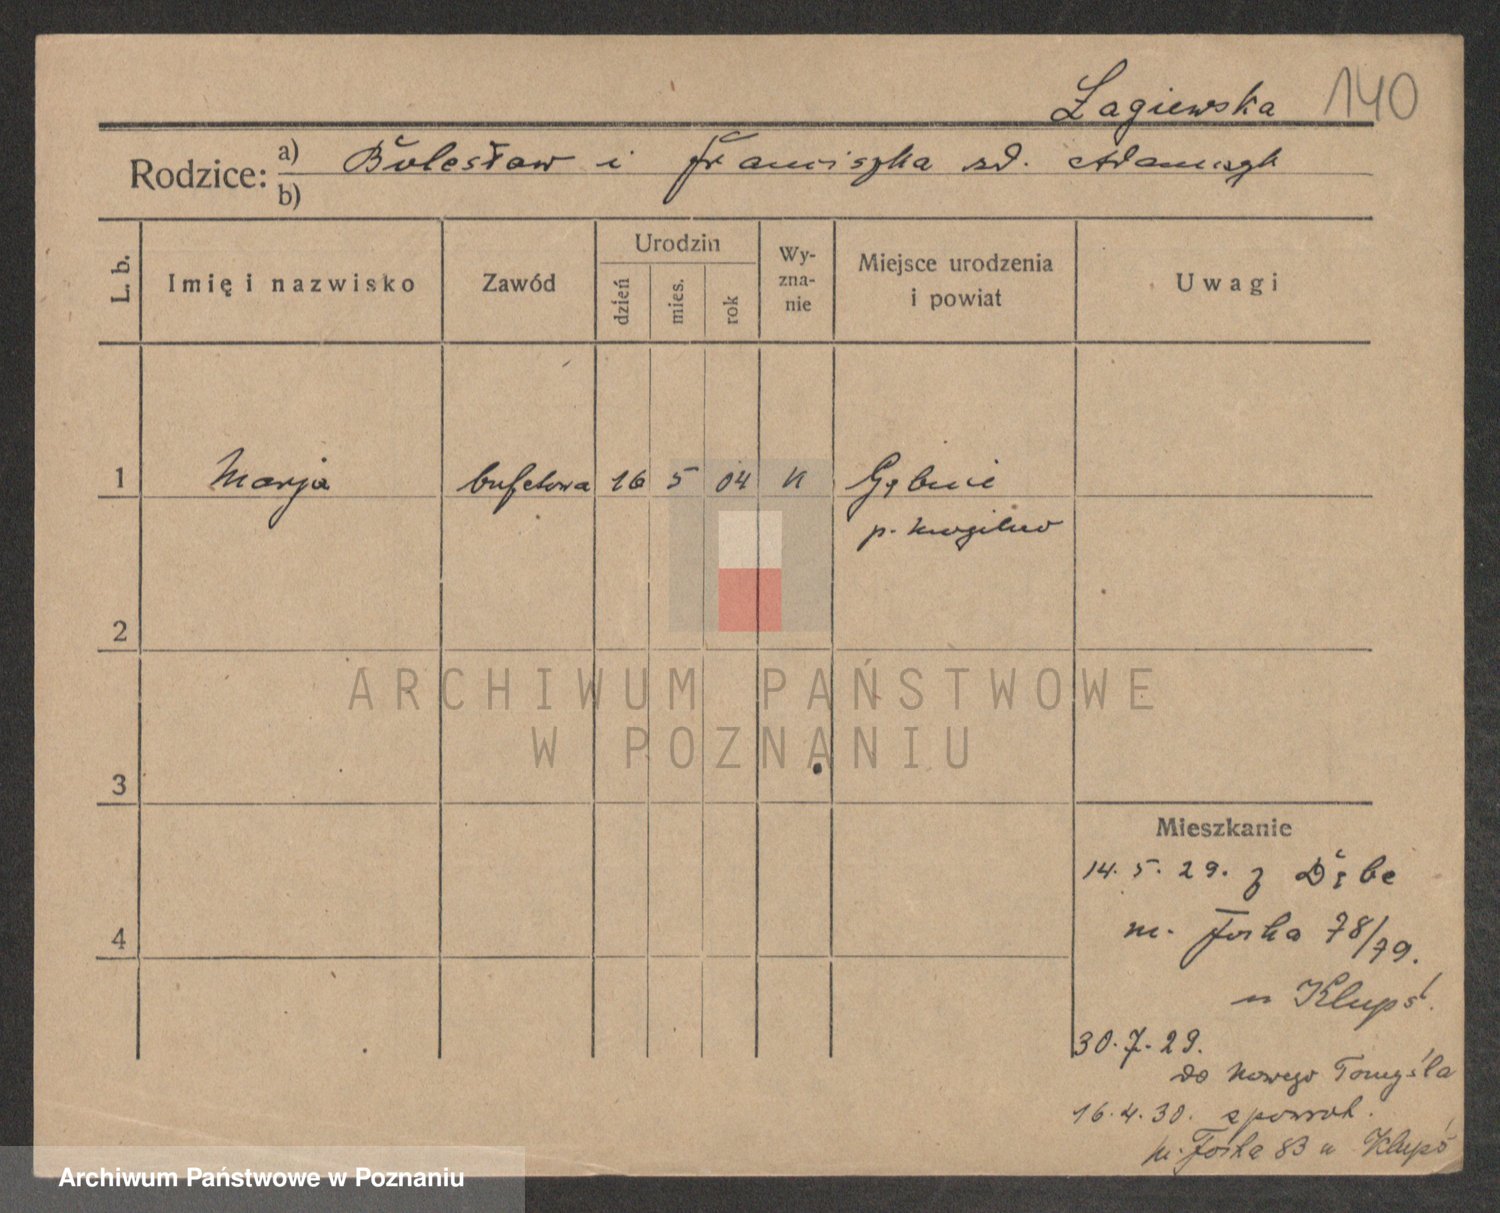 Łagiewska 140
Rodzice: a) Bolesław i Franciszka zd. Adamczyk
b)
L. b.
Imię i nazwisko
Zawód
Urodzin
dzień
mies.
rok
Wy-
zna-
nie
Miejsce urodzenia
i powiat
Uwagi
1 Marja bufetowa 16 5 04 k Gębice
p. Mogilno
2
3
4
Mieszkanie
14. 5. 29. z
m. 78/79.
u Klupś.
30. 7. 29.
do Nowego Tomyśla
16. 4. 30. spowrot.
83 u Klupś
ARCHIWUM PAŃSTWOWE
W POZNANIU
Archiwum Państwowe w Poznaniu